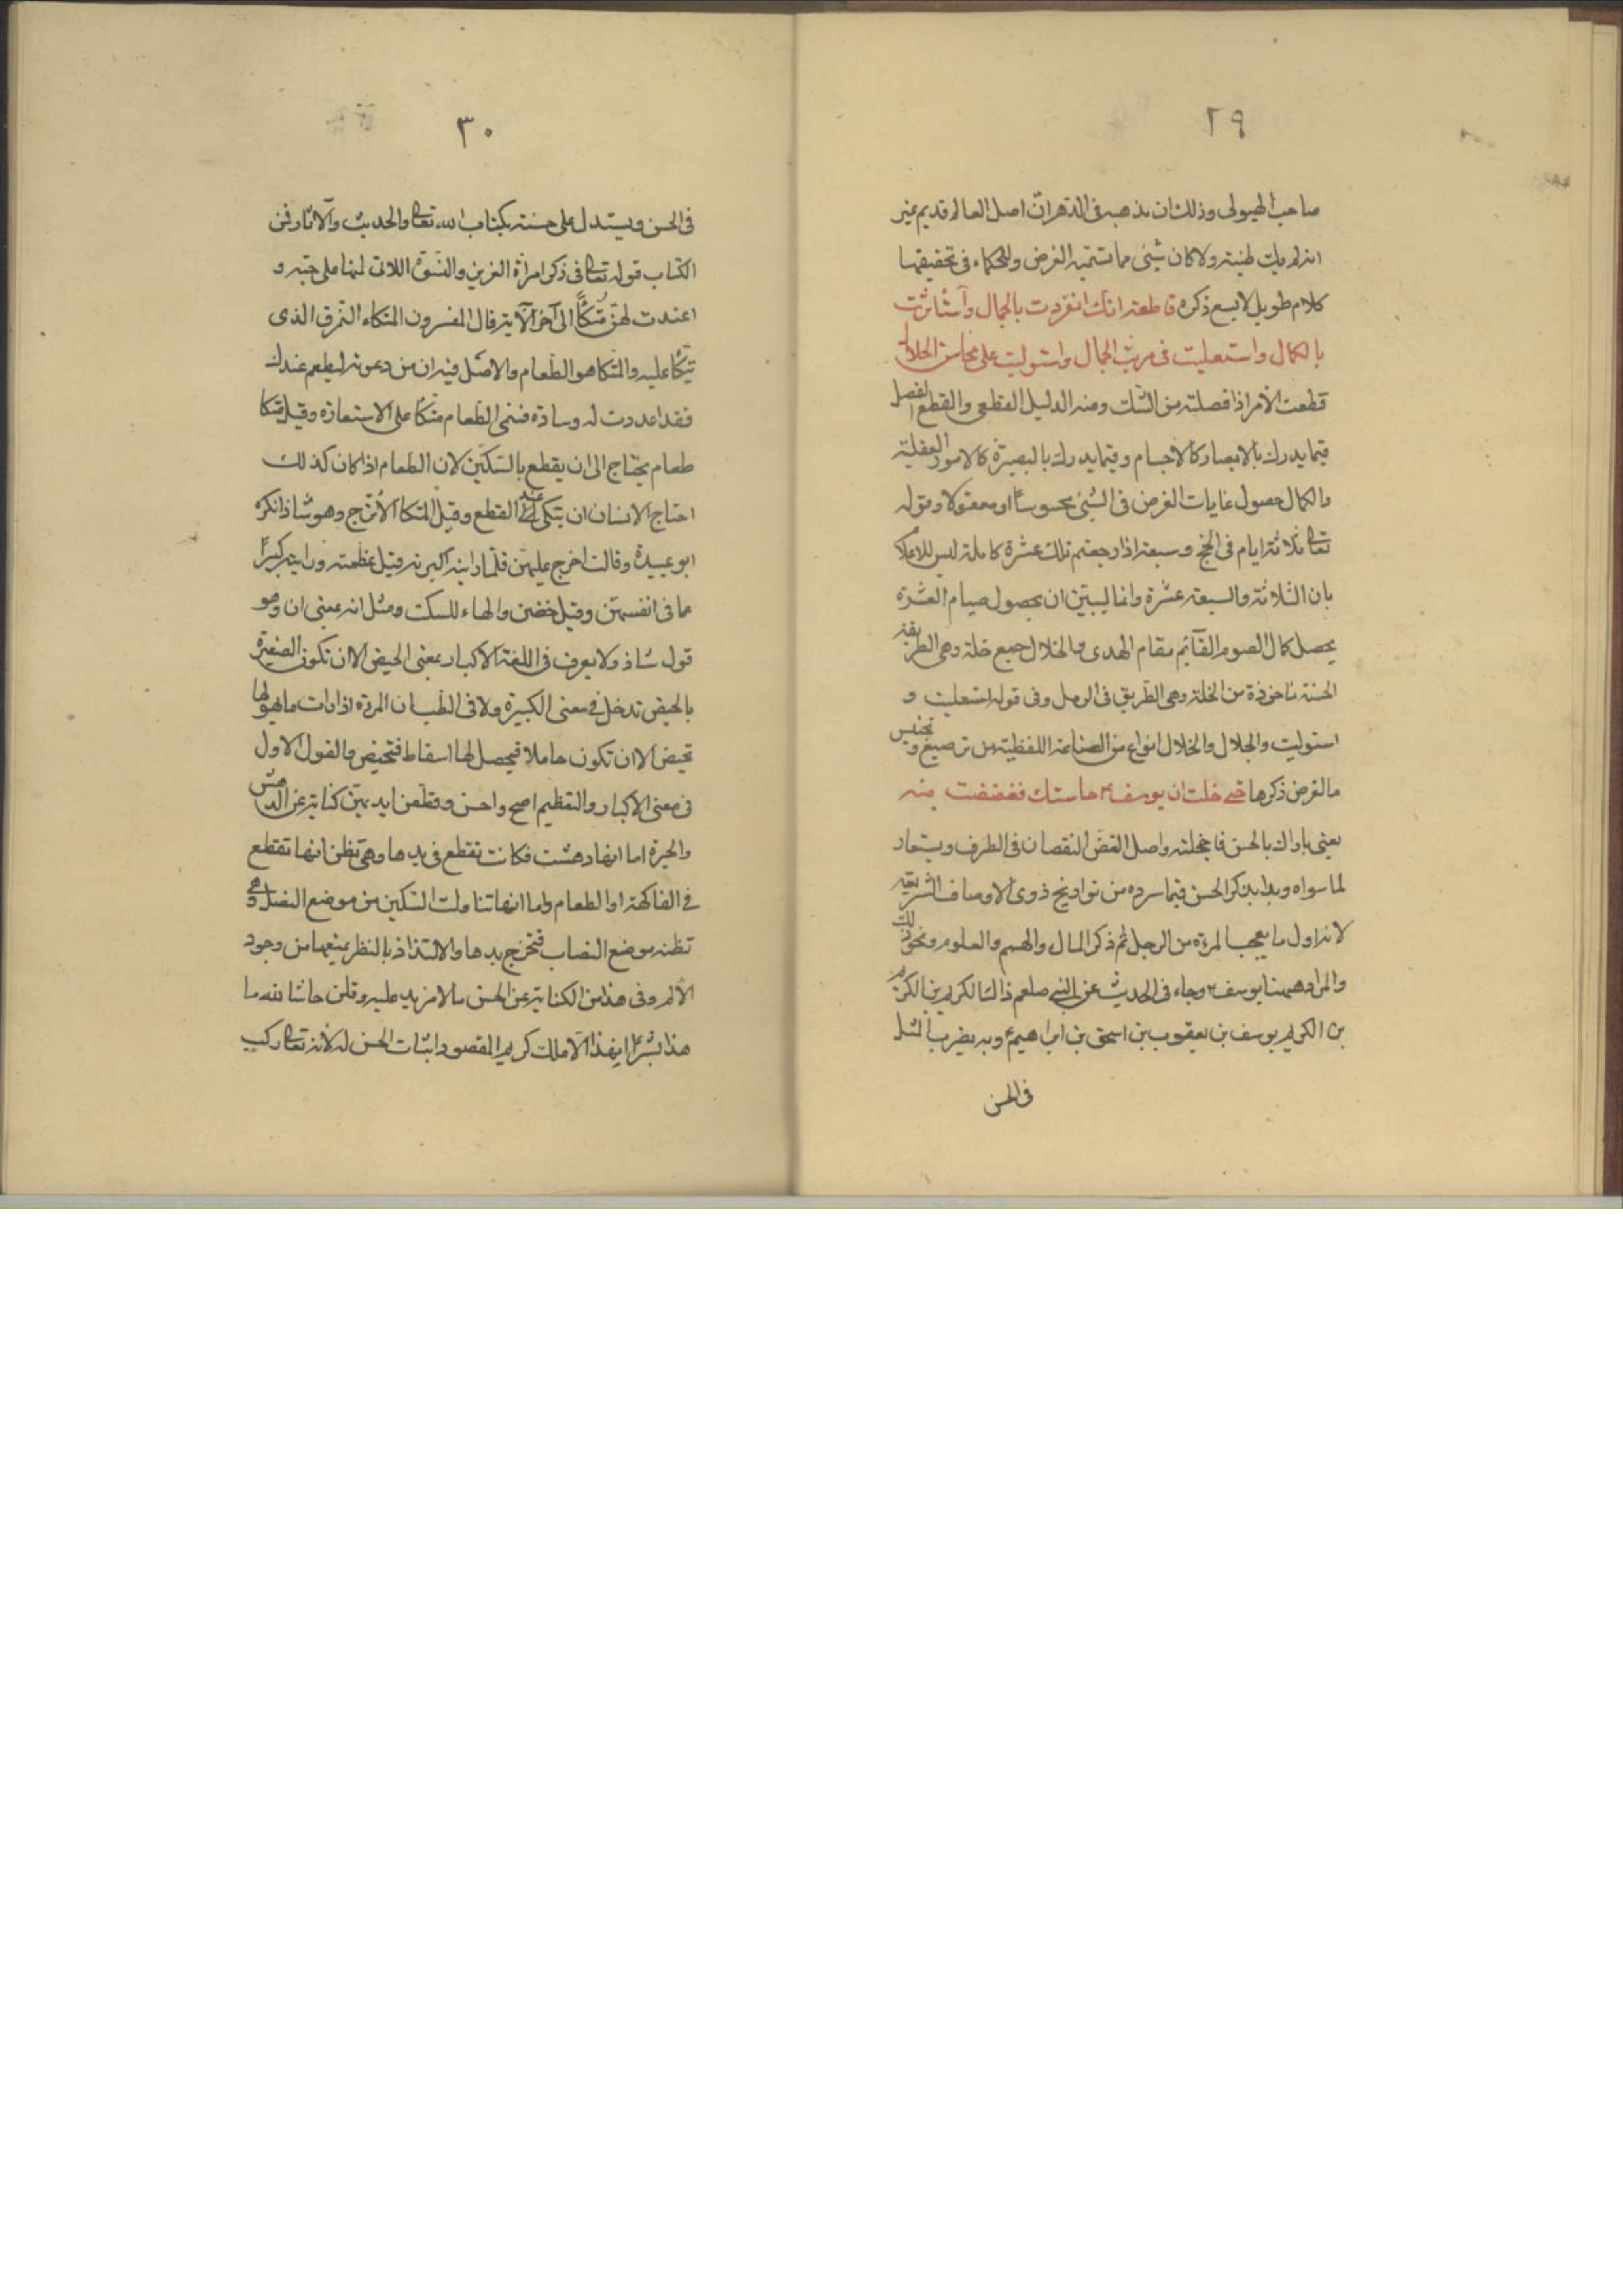 ٢٩
صاحب الهيولى وذلك ان مذهبه فى الدهر ان اصل العالم قديم غير
انه لم يك طينة ولا كان شيئى مما تسميه الغرض وللحكماء فى تحقيقها
كلام طويل لا يسع ذكره قاطعة انك انفردت بالجمال وآستأثرت
بالكمال واستعليت فى مرتب الجمال واستوليت على محاسن الخلال
قطعت الأمر اذا فصلته من الشك ومنه الدليل القطعى والقطع الفصل
فيما يدرك بالابصار كالاجسام وفيما يدرك بالبصيرة كالامور العقلية
والكمال حصول غايات الغرض فى الشيئ محسوسا او معقولا وقوله
تعالى ثلاثة ايام فى الحج وسبعة اذا رجعتم تلك عشرة كاملة ليس للاعلام
بان الثلاثة والسبعة عشرة وانما ليبين ان بحصول صيام العشرة
يحصل كمال الصوم القآئم مقام الهدى والخلال جمع خلة وهى الطريقة
الحسنة مأخوذة من الخلة وهى الطريق فى الرمل وفى قوله استعليت و
استوليت والجلال والخلال انواع من الصناعة اللفظية من ترصيع وتجنيس
مالغرض ذكرها حتى خلت ان يوسف ؏ حاسنك فغضضت منه
يعنى باراك بالحسن فاخجلته واصل الغض النقصان فى الطرف ويستعار
لما سواه وبدا بذكر الحسن فيما سرده من تواريخ ذوى الاوصاف الشريفة
لانه اول ما يعجب المرءة من الرجل ثم ذكر المال والهمم والعلوم ونحو ذلك
والمراد ههنا يوسف ؏ وجاء فى الحديث عن النبى صلعم ذالك الكريم بن الكريم
بن الكريم يوسف بن يعقوب بن اسحق بن ابراهيم ؏ وبه يضرب المثل
فى الحسن
٣٠
فى الحسن ويستدل على حسنه بكتاب الله تعالى والحديث والآثار فمن
الكتاب قوله تعالى فى ذكر امرأة العزيز والنسوة اللاتى لمنها على حبه و
اعتدت لهن متكأً الى آخر الآية قال المفسرون المتكاء النمرق الذى
يتكأ عليه والمتكا هو الطعام والاصل فيه ان من دعوته ليطعم عندك
فقد اعددت له وسادة فسمى الطعام متكأ على الاستعارة وقيل متكا
طعام يحتاج الى ان يقطع بالسكين لان الطعام اذا كان كذلك
احتاج الانسان ان يتكى عليه عند القطع وقيل المتكا الأترج وهو شاذ انكره
ابو عبيدة وقالت اخرج عليهن فلما راينه اكبرنه وقيل عظمنه وراينه كبيرًا
مما فى انفسهن وقيل حضن والهاء للسكت ومثل انه بمعنى ان وهو
قول شاذ ولا يعرف فى اللغة الاكبار بمعنى الحيض الا ان تكون الصغيرة
بالحيض تدخل فى معنى الكبيرة ولا فى الطب ان المرءة اذا رات ما يهولها
تحيض الا ان تكون حاملا فيحصل لها اسقاط فتحيض والقول الاول
فى معنى الاكبار والتعظيم اصح واحسن وقطعن ايديهن كناية عن الدهش
والحيرة اما انها دهشت فكانت تقطع فى يدها وهى تظن انها تقطع
فى الفاكهة او الطعام واما انها تناولت السكين من موضع النصل وهى
تظنه موضع النصاب فتخرج يدها والالتذاذ بالنظر يمنعها من وجود
الألم وفى هذا من الكناية عن الحسن مالا مزيد عليه وقلن حاشا لله ما
هذا بشرًا ان هذا الا ملك كريم المقصود اثبات الحسن له لانه تعالى ركب